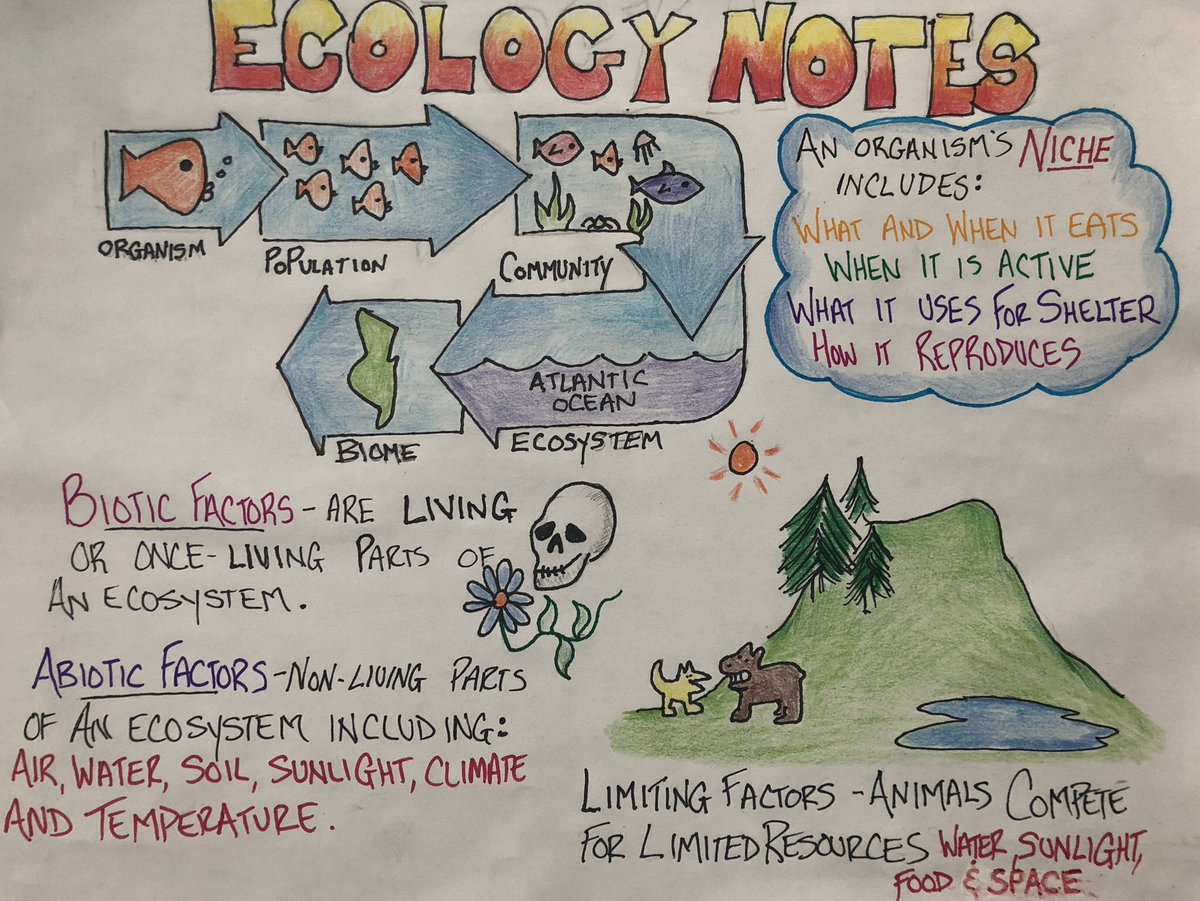 ECOLOGY NOTES
ORGANISM
POPULATION
COMMUNITY
ATLANTIC
OCEAN
ECOSYSTEM
BIOME
AN ORGANISM'S NICHE
INCLUDES:
WHAT AND WHEN IT EATS
WHEN IT IS ACTIVE
WHAT IT USES FOR SHELTER
HOW IT REPRODUCES
BIOTIC FACTORS - ARE LIVING
OR ONCE-LIVING PARTS OF
AN ECOSYSTEM.
ABIOTIC FACTORS - NON-LIVING PARTS
OF AN ECOSYSTEM INCLUDING:
AIR, WATER, SOIL, SUNLIGHT, CLIMATE
AND TEMPERATURE.
LIMITING FACTORS - ANIMALS COMPETE
FOR LIMITED RESOURCES WATER, SUNLIGHT,
FOOD & SPACE